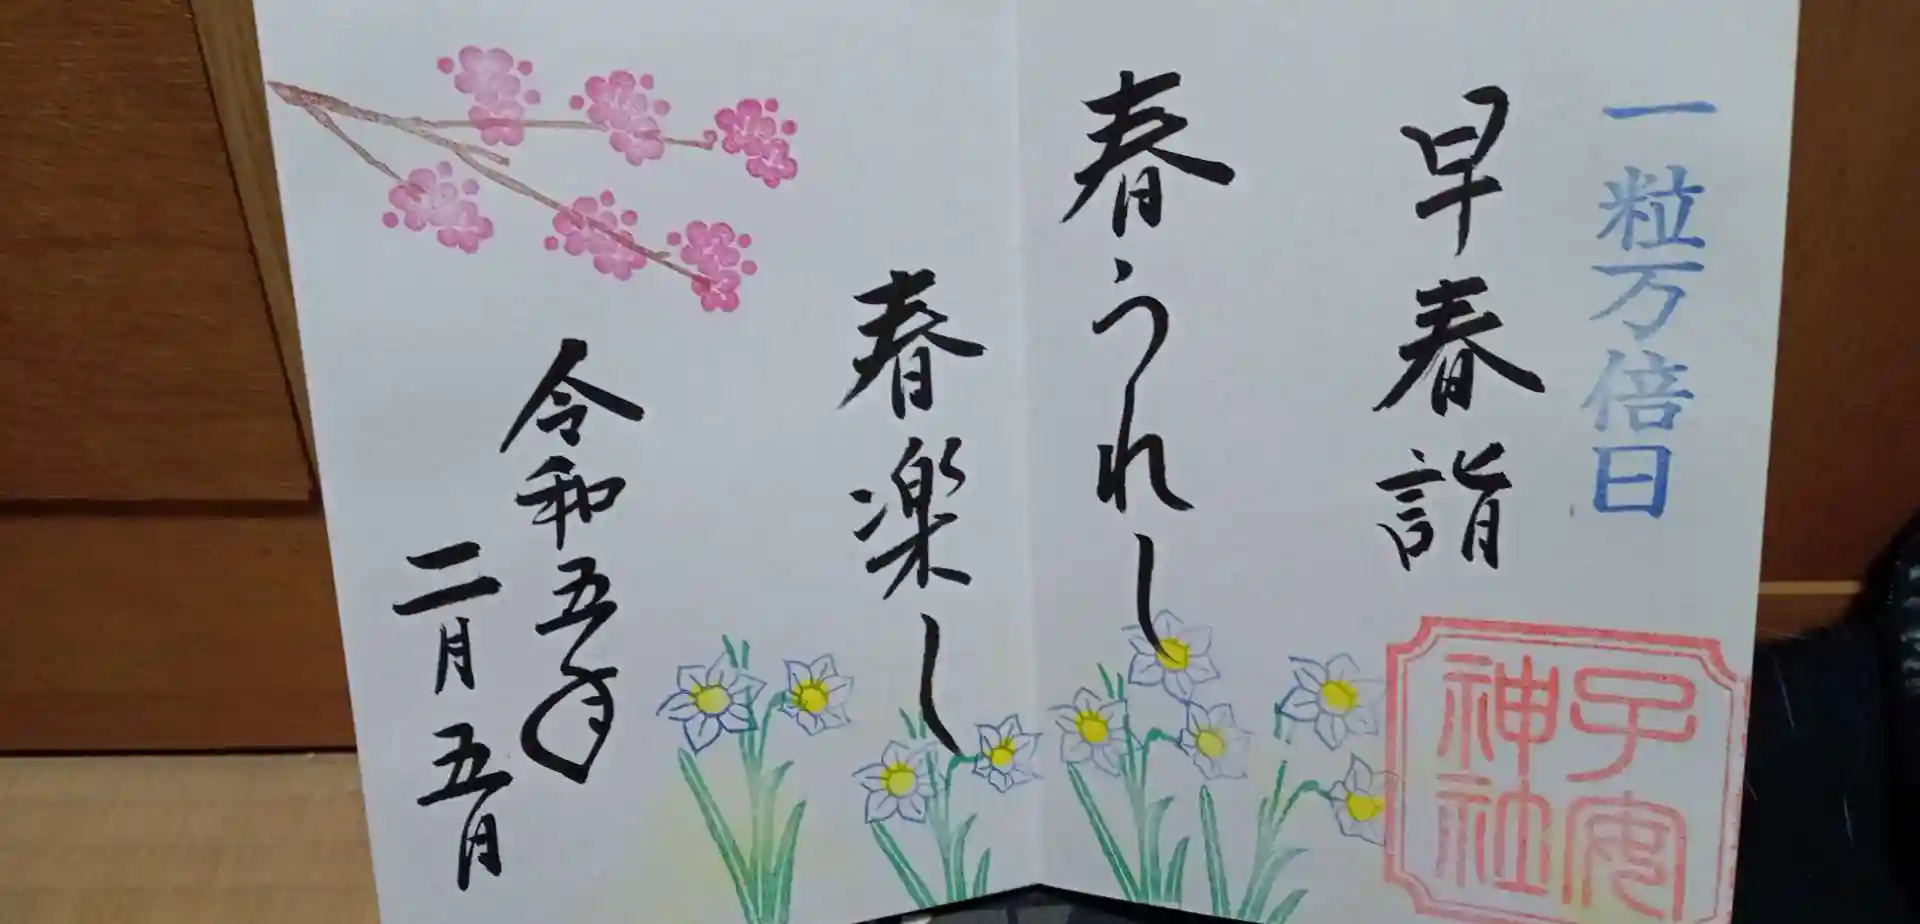 一粒万倍日
早春詣
春うれし
春楽し
令和五年
二月五日
子安
神社